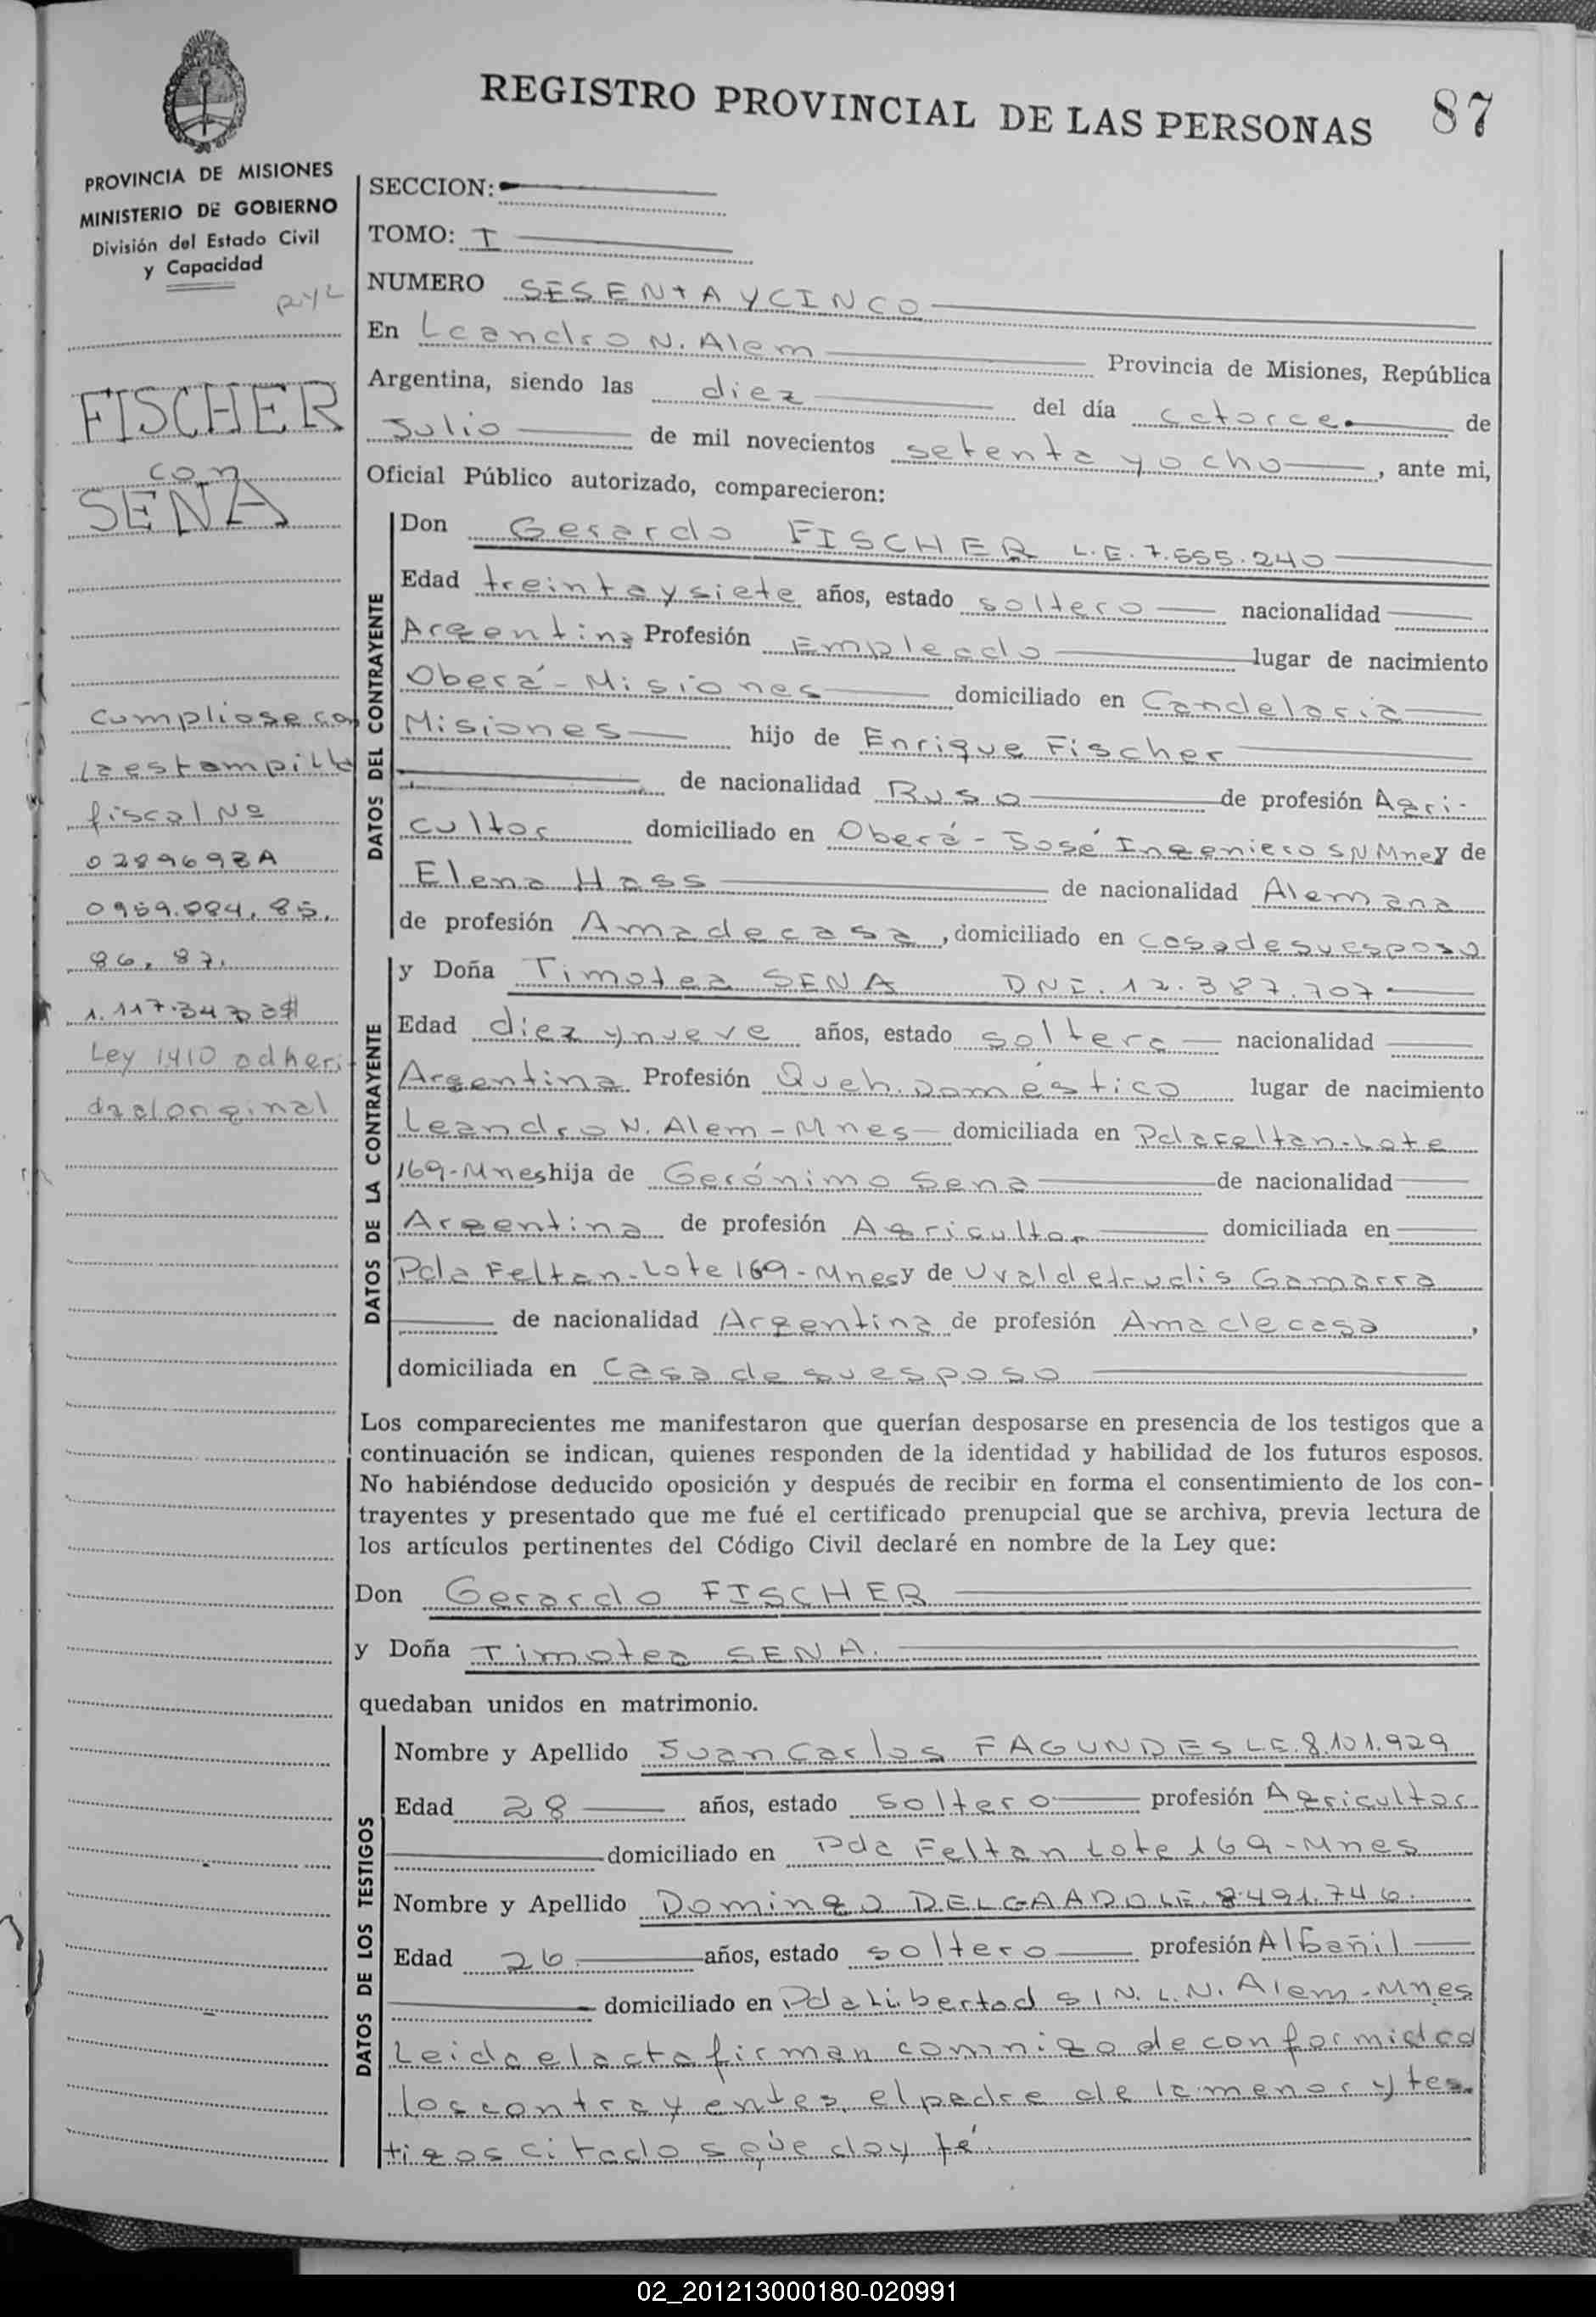 REGISTRO PROVINCIAL DE LAS PERSONAS 87
PROVINCIA DE MISIONES
MINISTERIO DE GOBIERNO
División del Estado Civil
y Capacidad
FISCHER
con
SENA
cumpliose con
la estampilla
fiscal Nº
0289698A
0959.084, 85,
86, 87.
Ley 1410 adheri-
da al original
SECCION:
TOMO: I
NUMERO SESENTA Y CINCO
En Leandro N. Alem Provincia de Misiones, República
Argentina, siendo las diez del día catorce de
Julio de mil novecientos setenta y ocho, ante mi,
Oficial Público autorizado, comparecieron:
DATOS DEL CONTRAYENTE
Don Gerardo FISCHER L.E. 7.555.240
Edad treinta y siete años, estado soltero nacionalidad
Argentina Profesión Empleado lugar de nacimiento
Oberá - Misiones domiciliado en Candelaria
Misiones hijo de Enrique Fischer
de nacionalidad Ruso de profesión Agri-
cultor domiciliado en Oberá - José Ingeniero S/N Mnes y de
Elena Hass de nacionalidad Alemana
de profesión Ama de casa, domiciliado en casa de su esposo
DATOS DE LA CONTRAYENTE
y Doña Timotea SENA DNI. 12.387.707
Edad diez y nueve años, estado soltera nacionalidad
Argentina Profesión Queh. Doméstico lugar de nacimiento
Leandro N. Alem - Mnes domiciliada en Pda Feltan - Lote
169 - Mnes hija de Gerónimo Sena de nacionalidad
Argentina de profesión Agricultor domiciliada en
Pda Feltan - Lote 169 - Mnes y de Uvaldetrudis Gamarra
de nacionalidad Argentina de profesión Ama de casa,
domiciliada en Casa de su esposo
Los comparecientes me manifestaron que querían desposarse en presencia de los testigos que a
continuación se indican, quienes responden de la identidad y habilidad de los futuros esposos.
No habiéndose deducido oposición y después de recibir en forma el consentimiento de los con-
trayentes y presentado que me fué el certificado prenupcial que se archiva, previa lectura de
los artículos pertinentes del Código Civil declaré en nombre de la Ley que:
Don Gerardo FISCHER
y Doña Timotea SENA.
quedaban unidos en matrimonio.
DATOS DE LOS TESTIGOS
Nombre y Apellido Juan Carlos FAGUNDES L.E. 8.101.929
Edad 28 años, estado soltero profesión Agricultor
domiciliado en Pda Feltan Lote 169 - Mnes
Nombre y Apellido Domingo DELGAADO L.E. 8.491.746.
Edad 26 años, estado soltero profesión Albañil
domiciliado en Pda Libertad S/N. L.N. Alem - Mnes
Leida el acta firman conmigo de conformidad
los contrayentes, el padre de la menor y tes-
tigos citados que doy fé.
02_201213000180-020991